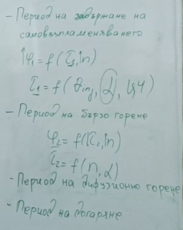 - Период на задържане на
самовъзпламеняването
φ₁ = f(τ₁, n)
τ₁ = f(θвпр, α, ЦЧ)
- Период на бързо горене
φ₂ = f(τ₂, n)
τ₂ = f(n, α)
- Период на дифузионно горене
- Период на догаряне